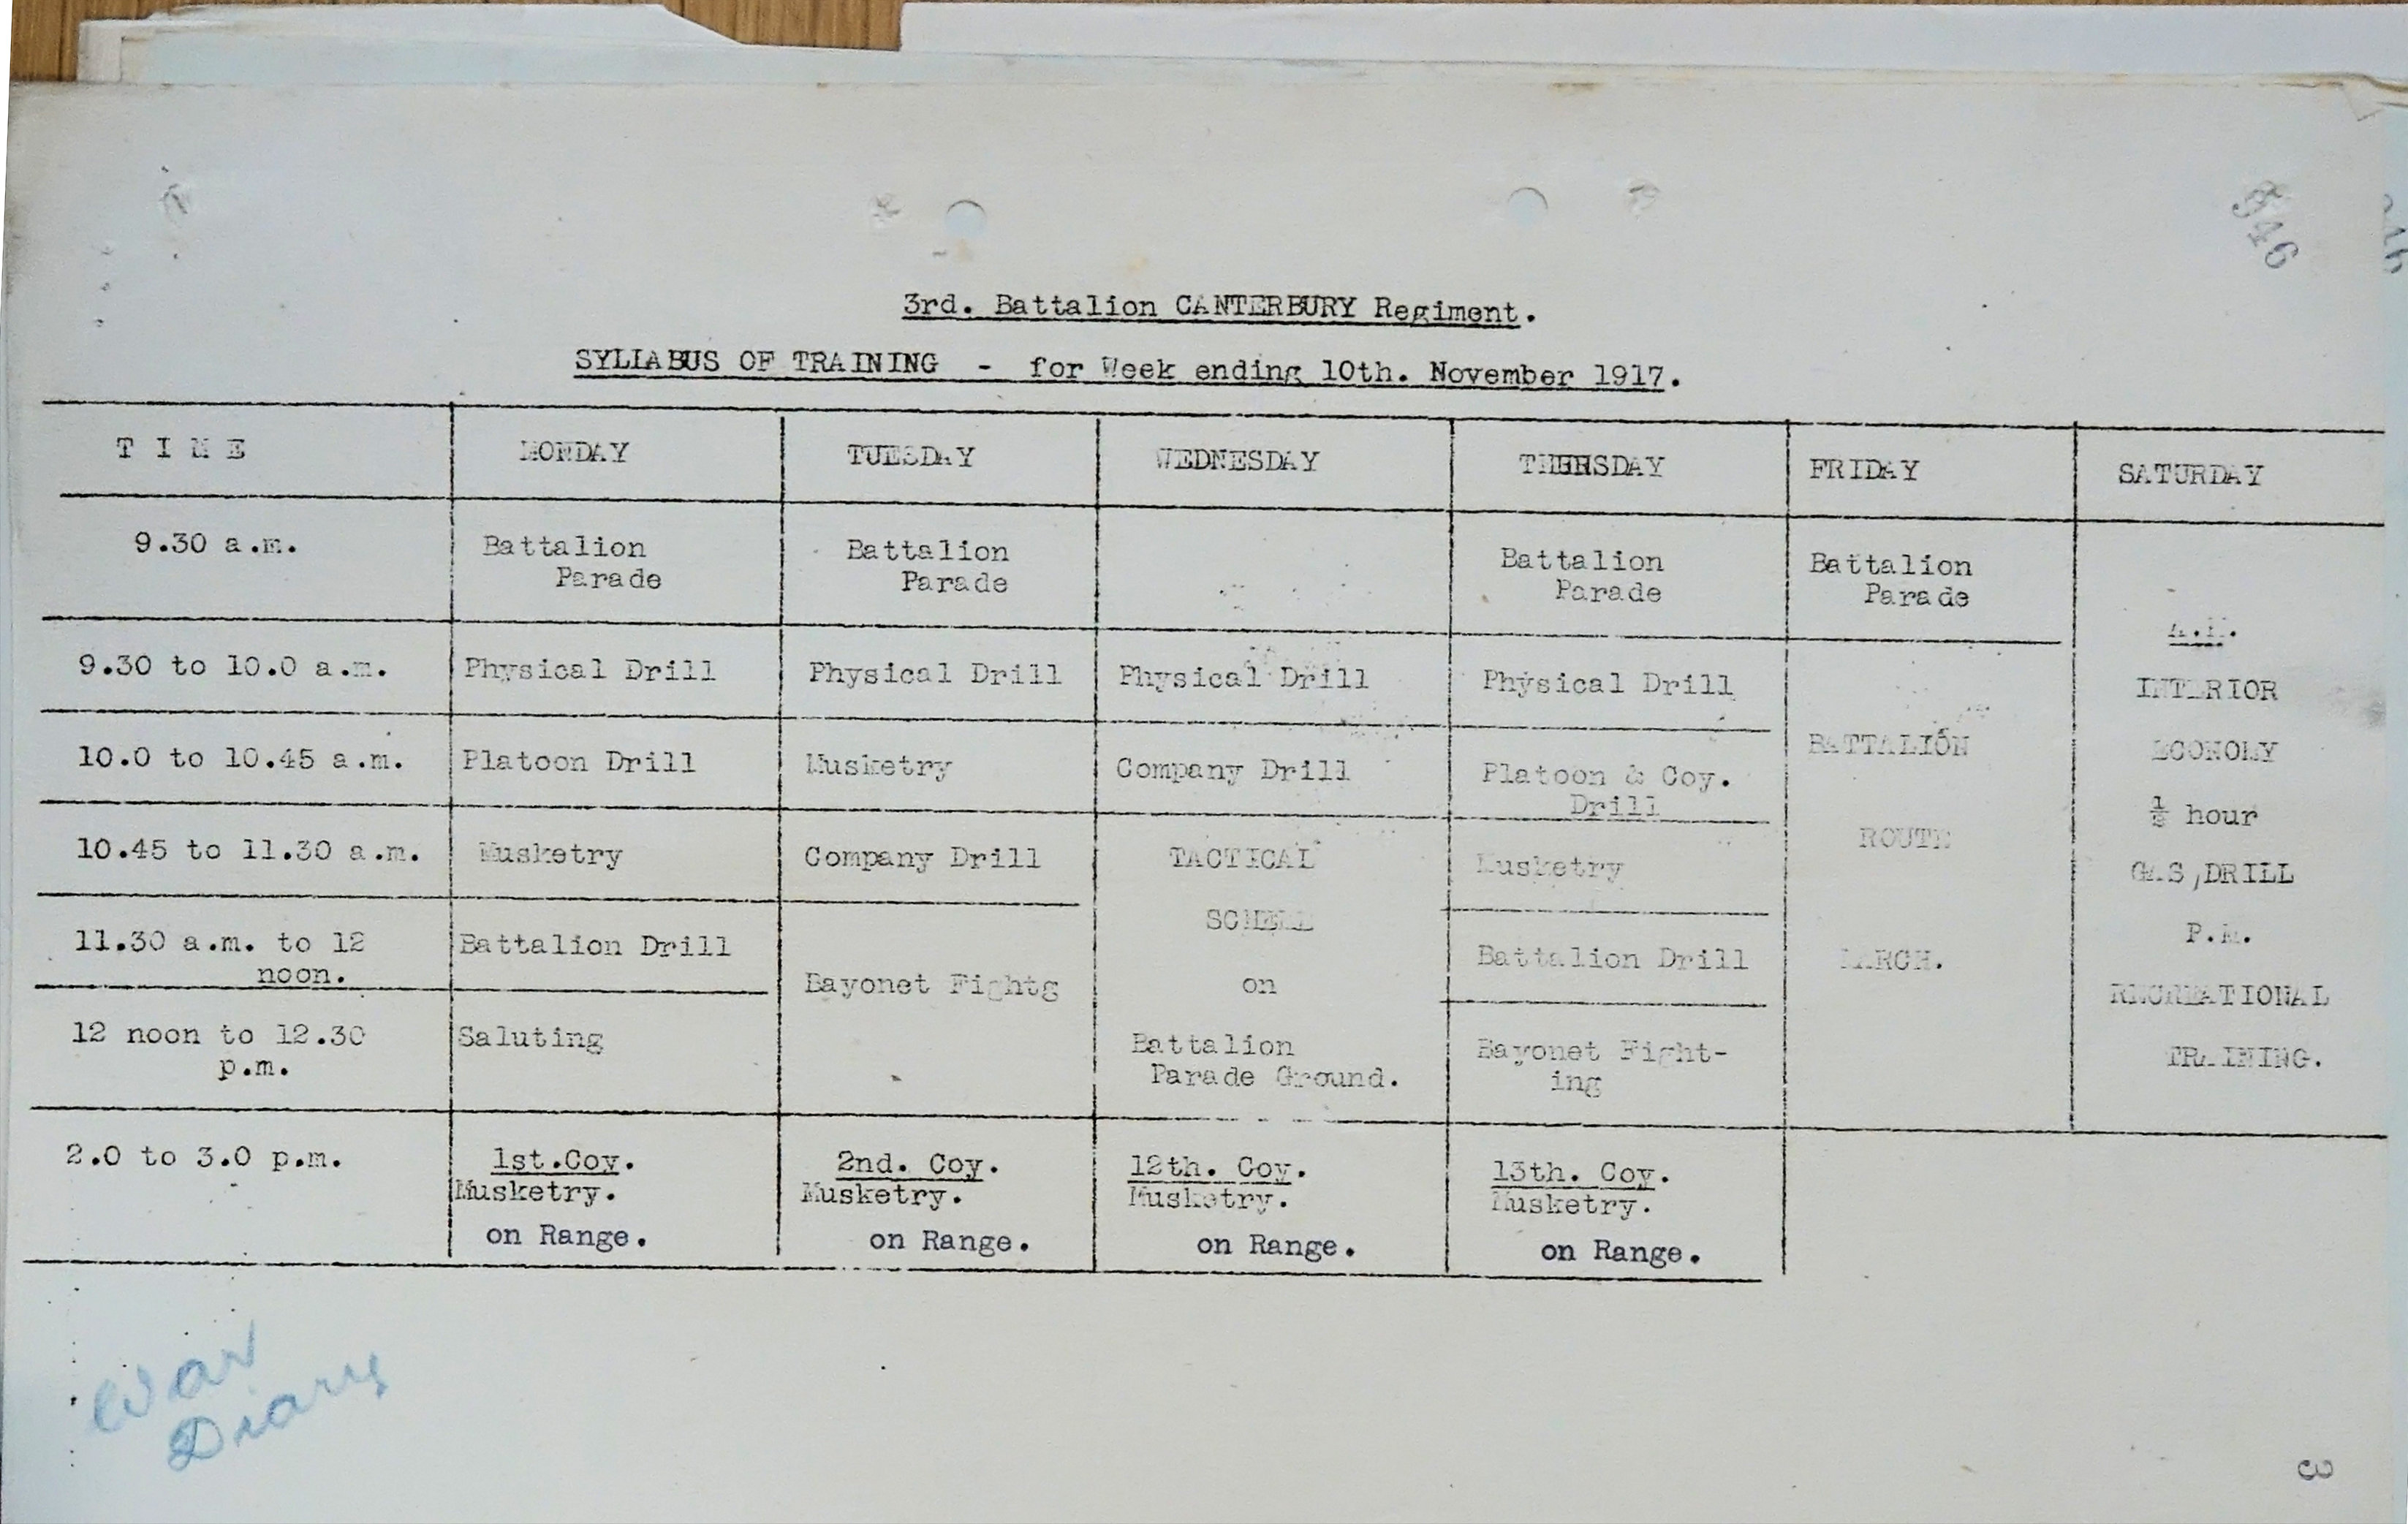 546
3rd. Battalion CANTERBURY Regiment.
SYLLABUS OF TRAINING - for Week ending 10th. November 1917.
T I M E MONDAY TUESDAY WEDNESDAY THURSDAY FRIDAY SATURDAY
9.30 a.m. Battalion Battalion Battalion Battalion
Parade Parade Parade Parade
A.M.
9.30 to 10.0 a.m. Physical Drill Physical Drill Physical Drill Physical Drill INTERIOR
10.0 to 10.45 a.m. Platoon Drill Musketry Company Drill Platoon & Coy. BATTALION ECONOMY
Drill ½ hour
10.45 to 11.30 a.m. Musketry Company Drill TACTICAL Musketry ROUTE GAS,DRILL
SCHEME P.M.
11.30 a.m. to 12 Battalion Drill Battalion Drill MARCH.
noon. Bayonet Fightg on RECREATIONAL
12 noon to 12.30 Saluting Battalion Bayonet Fight- TRAINING.
p.m. Parade Ground. ing
2.0 to 3.0 p.m. 1st.Coy. 2nd. Coy. 12th. Coy. 13th. Coy.
Musketry. Musketry. Musketry. Musketry.
on Range. on Range. on Range. on Range.
War
Diary
3